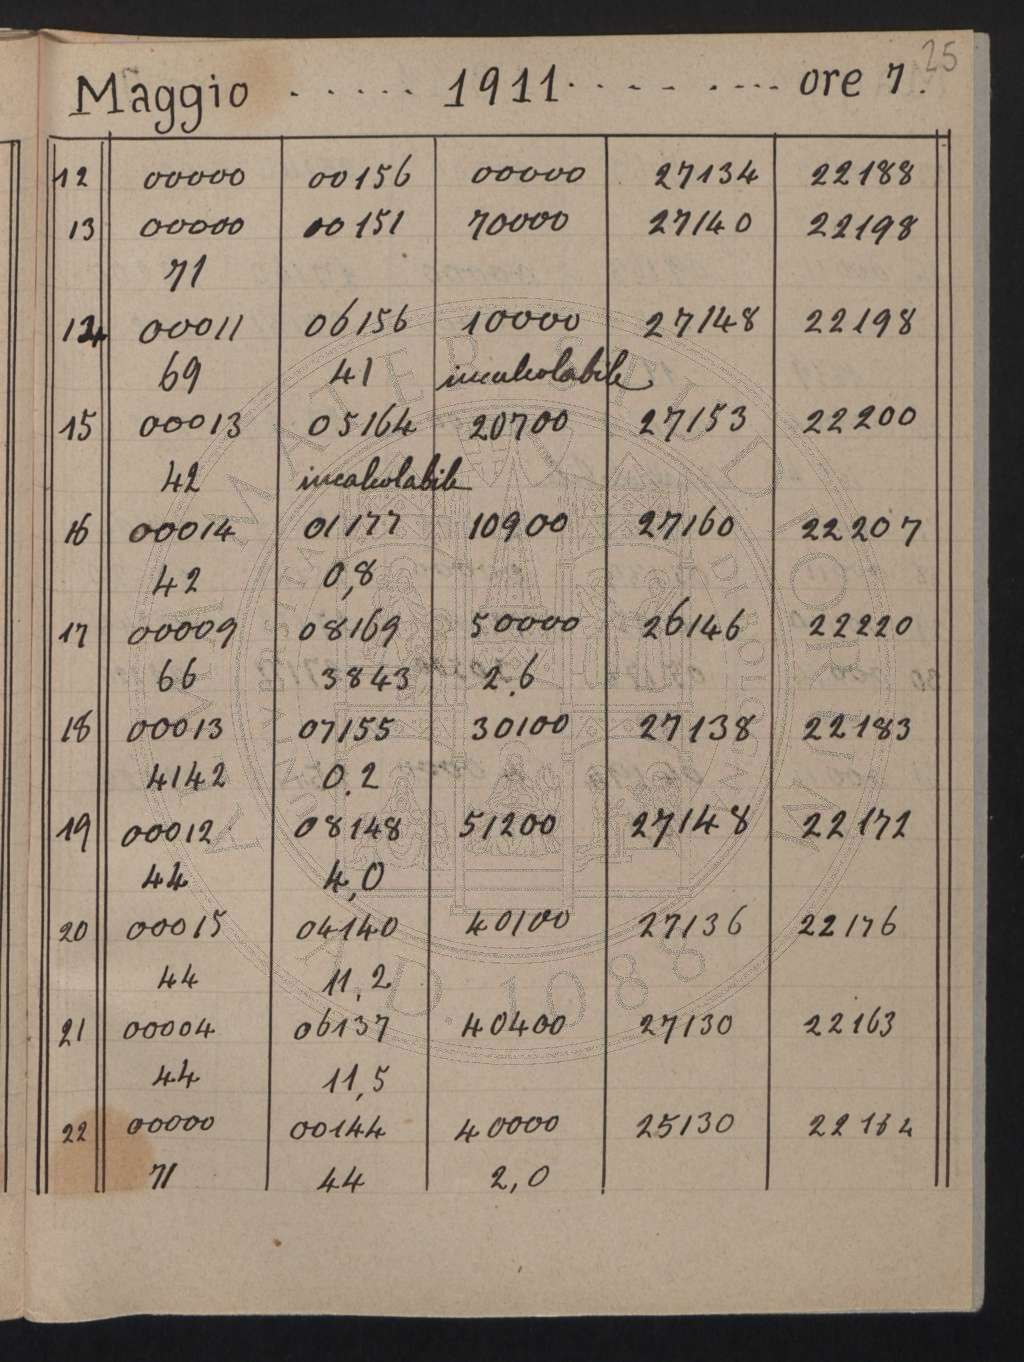 25
Maggio 1911 ore 7.
12 00000 00156 00000 27134 22188
13 00000 00151 70000 27140 22198
71
14 00011 06156 10000 27148 22198
69 41 incalcolabile
15 00013 05164 20700 27153 22200
42 incalcolabile
16 00014 01177 10900 27160 22207
42 0,8
17 00009 08169 50000 26146 22220
66 3843 2.6
18 00013 07155 30100 27138 22183
4142 0.2
19 00012 08148 51200 27148 22172
44 4,0
20 00015 04140 40100 27136 22176
44 11,2
21 00004 06137 40400 27130 22163
44 11,5
22 00000 00144 40000 25130 22164
71 44 2,0
ALMA MATER STUDIORUM
A.D. 1088